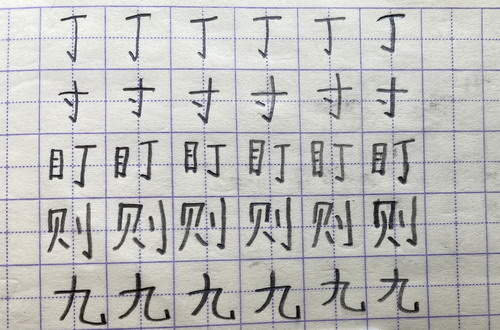 丁丁丁丁丁丁
寸寸寸寸寸寸
盯盯盯盯盯盯
则则则则则则
九九九九九九